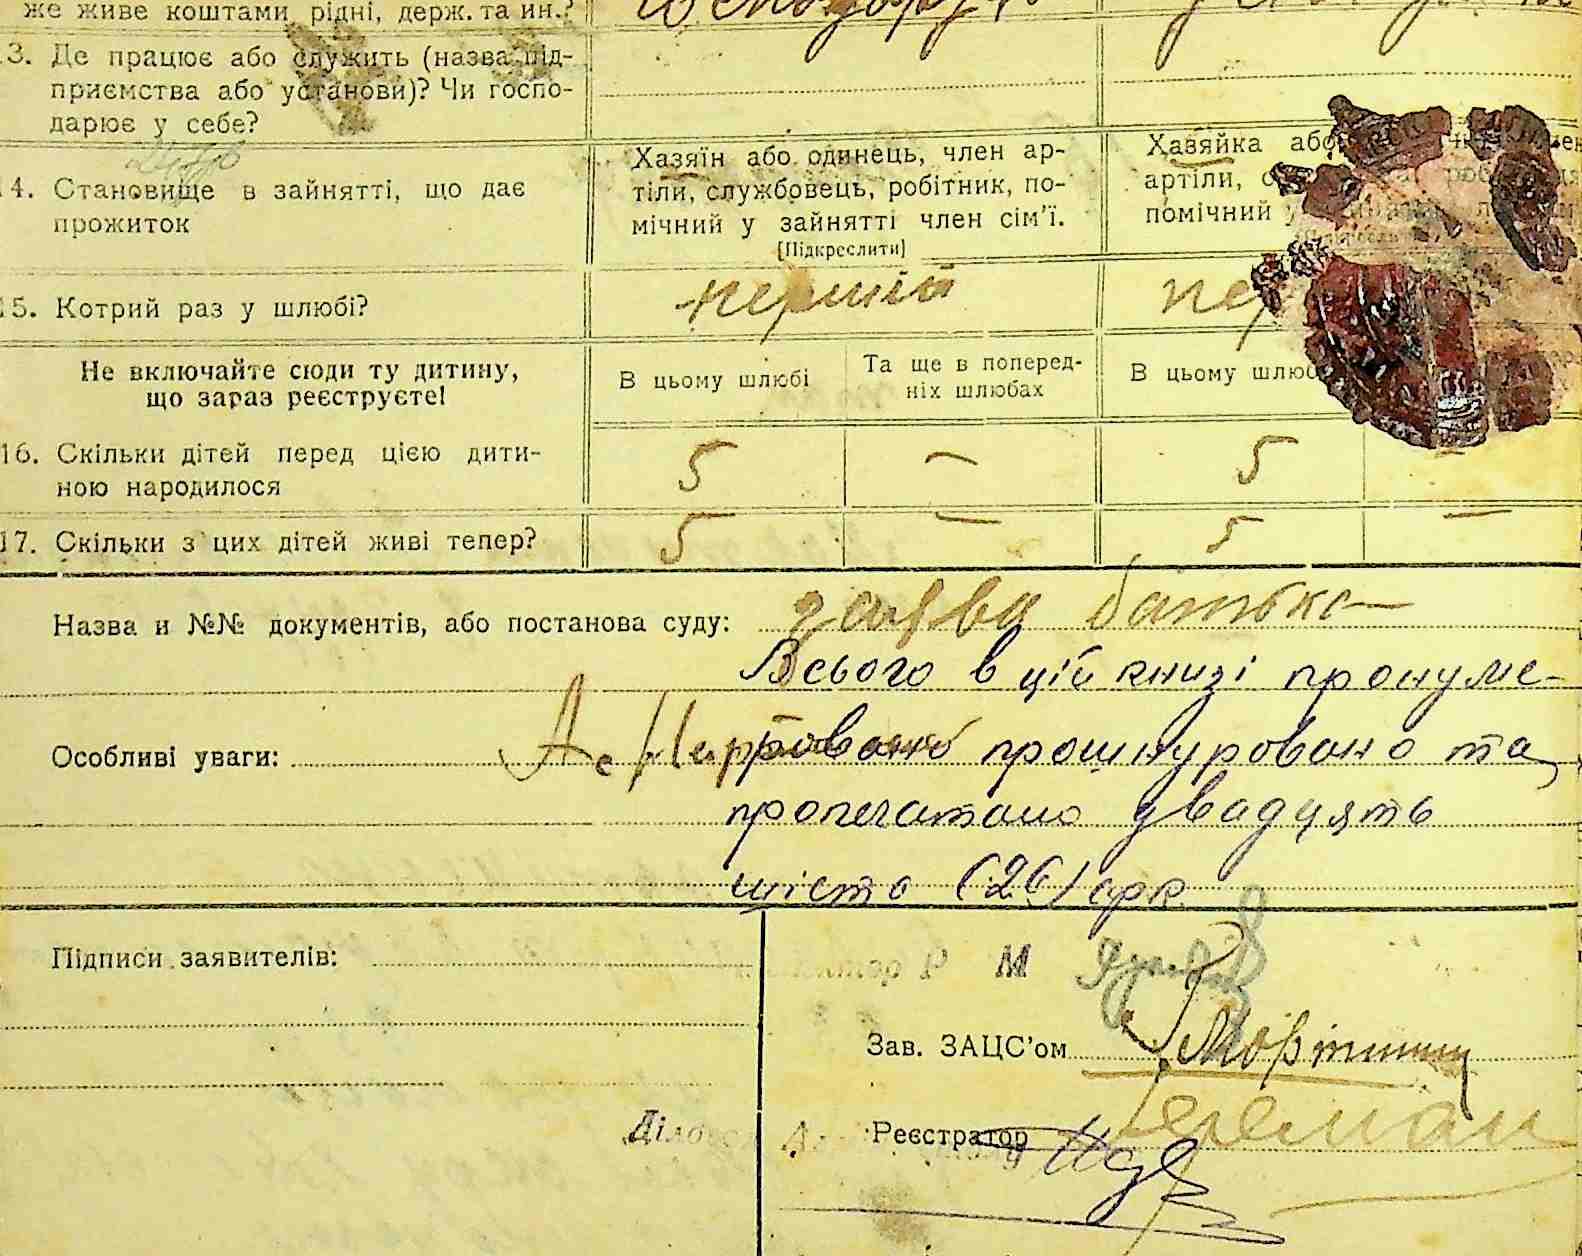 же живе коштами рідні, держ. та ин.?
3. Де працює або служить (назва під-
приємства або установи)? Чи госпо-
дарює у себе?
4. Становище в зайнятті, що дає
прожиток
Хазяїн або одинець, член ар-
тіли, службовець, робітник, по-
мічний у зайнятті член сім'ї.
[Підкреслити]
Хазяйка або
артіли,
помічний у
15. Котрий раз у шлюбі?
перший
пер
Не включайте сюди ту дитину,
що зараз реєструєте!
В цьому шлюбі
Та ще в поперед-
ніх шлюбах
В цьому шлюб
16. Скільки дітей перед цією дити-
ною народилося
5 — 5 —
17. Скільки з цих дітей живі тепер?
5 — 5 —
Назва и №№ документів, або постанова суду: заява батька
Всього в цій книзі пронуме-
Особливі уваги: ровано прошнуровано та
пропечатано двадцять
шість (26) арк
Підписи заявителів:
Р М
Зав. ЗАЦС'ом
Реєстратор